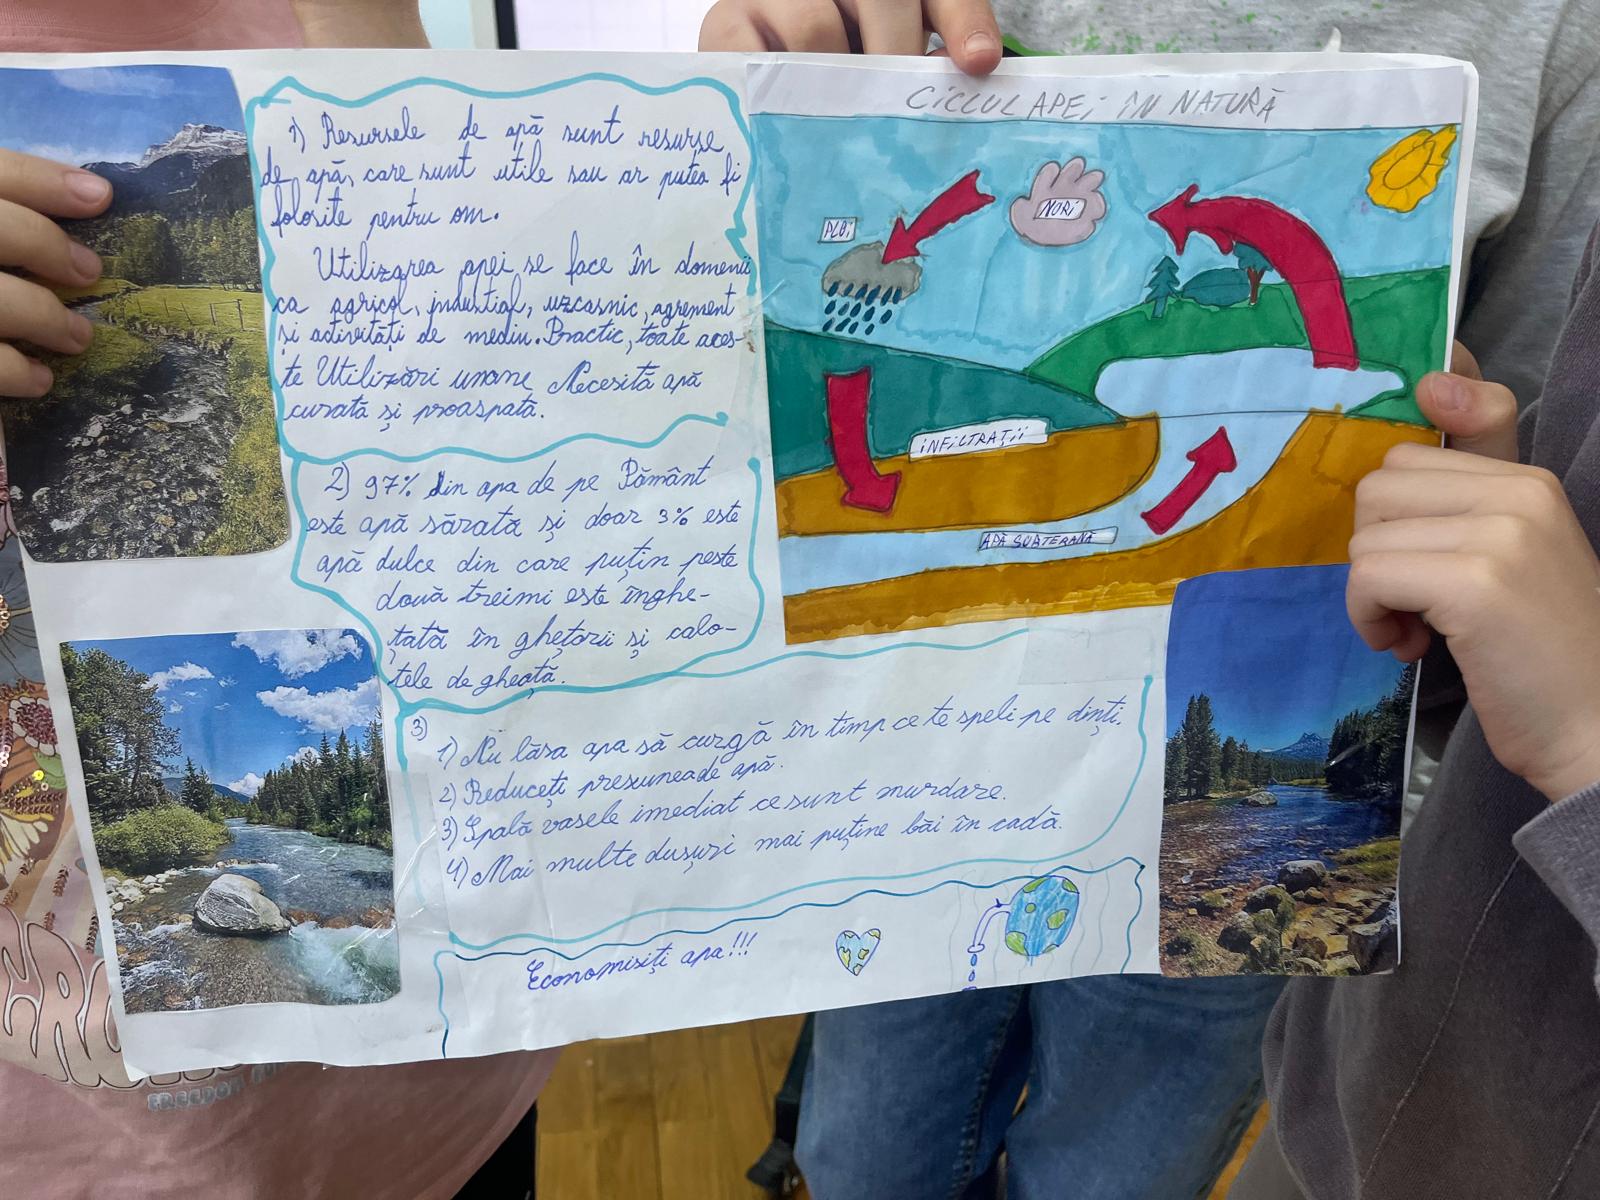 1) Resursele de apă sunt resurse
de apă, care sunt utile sau ar putea fi
folosite pentru om.
Utilizarea apei se face în domenii
ca agricol, industial, uzcasnic, agrement
și activități de mediu. Practic, toate aces-
te Utilizări umane Necesită apă
curată și proaspată.
2) 97% din apa de pe Pământ
este apă sărata și doar 3% este
apă dulce din care puțin peste
două treimi este înghe-
țată în ghețarii și calo-
tele de gheață.
3)
1) Nu lăsa apa să curgă în timp ce te speli pe dinți.
2) Reduceți presiunea de apă.
3) Spală vasele imediat ce sunt murdare.
4) Mai multe dușuri mai puține băi în cadă.
Economisiți apa!!!
CICLUL APEI ÎN NATURĂ
NORI
PLOI
INFILTRAȚII
APĂ SUBTERANĂ
FREEDOM